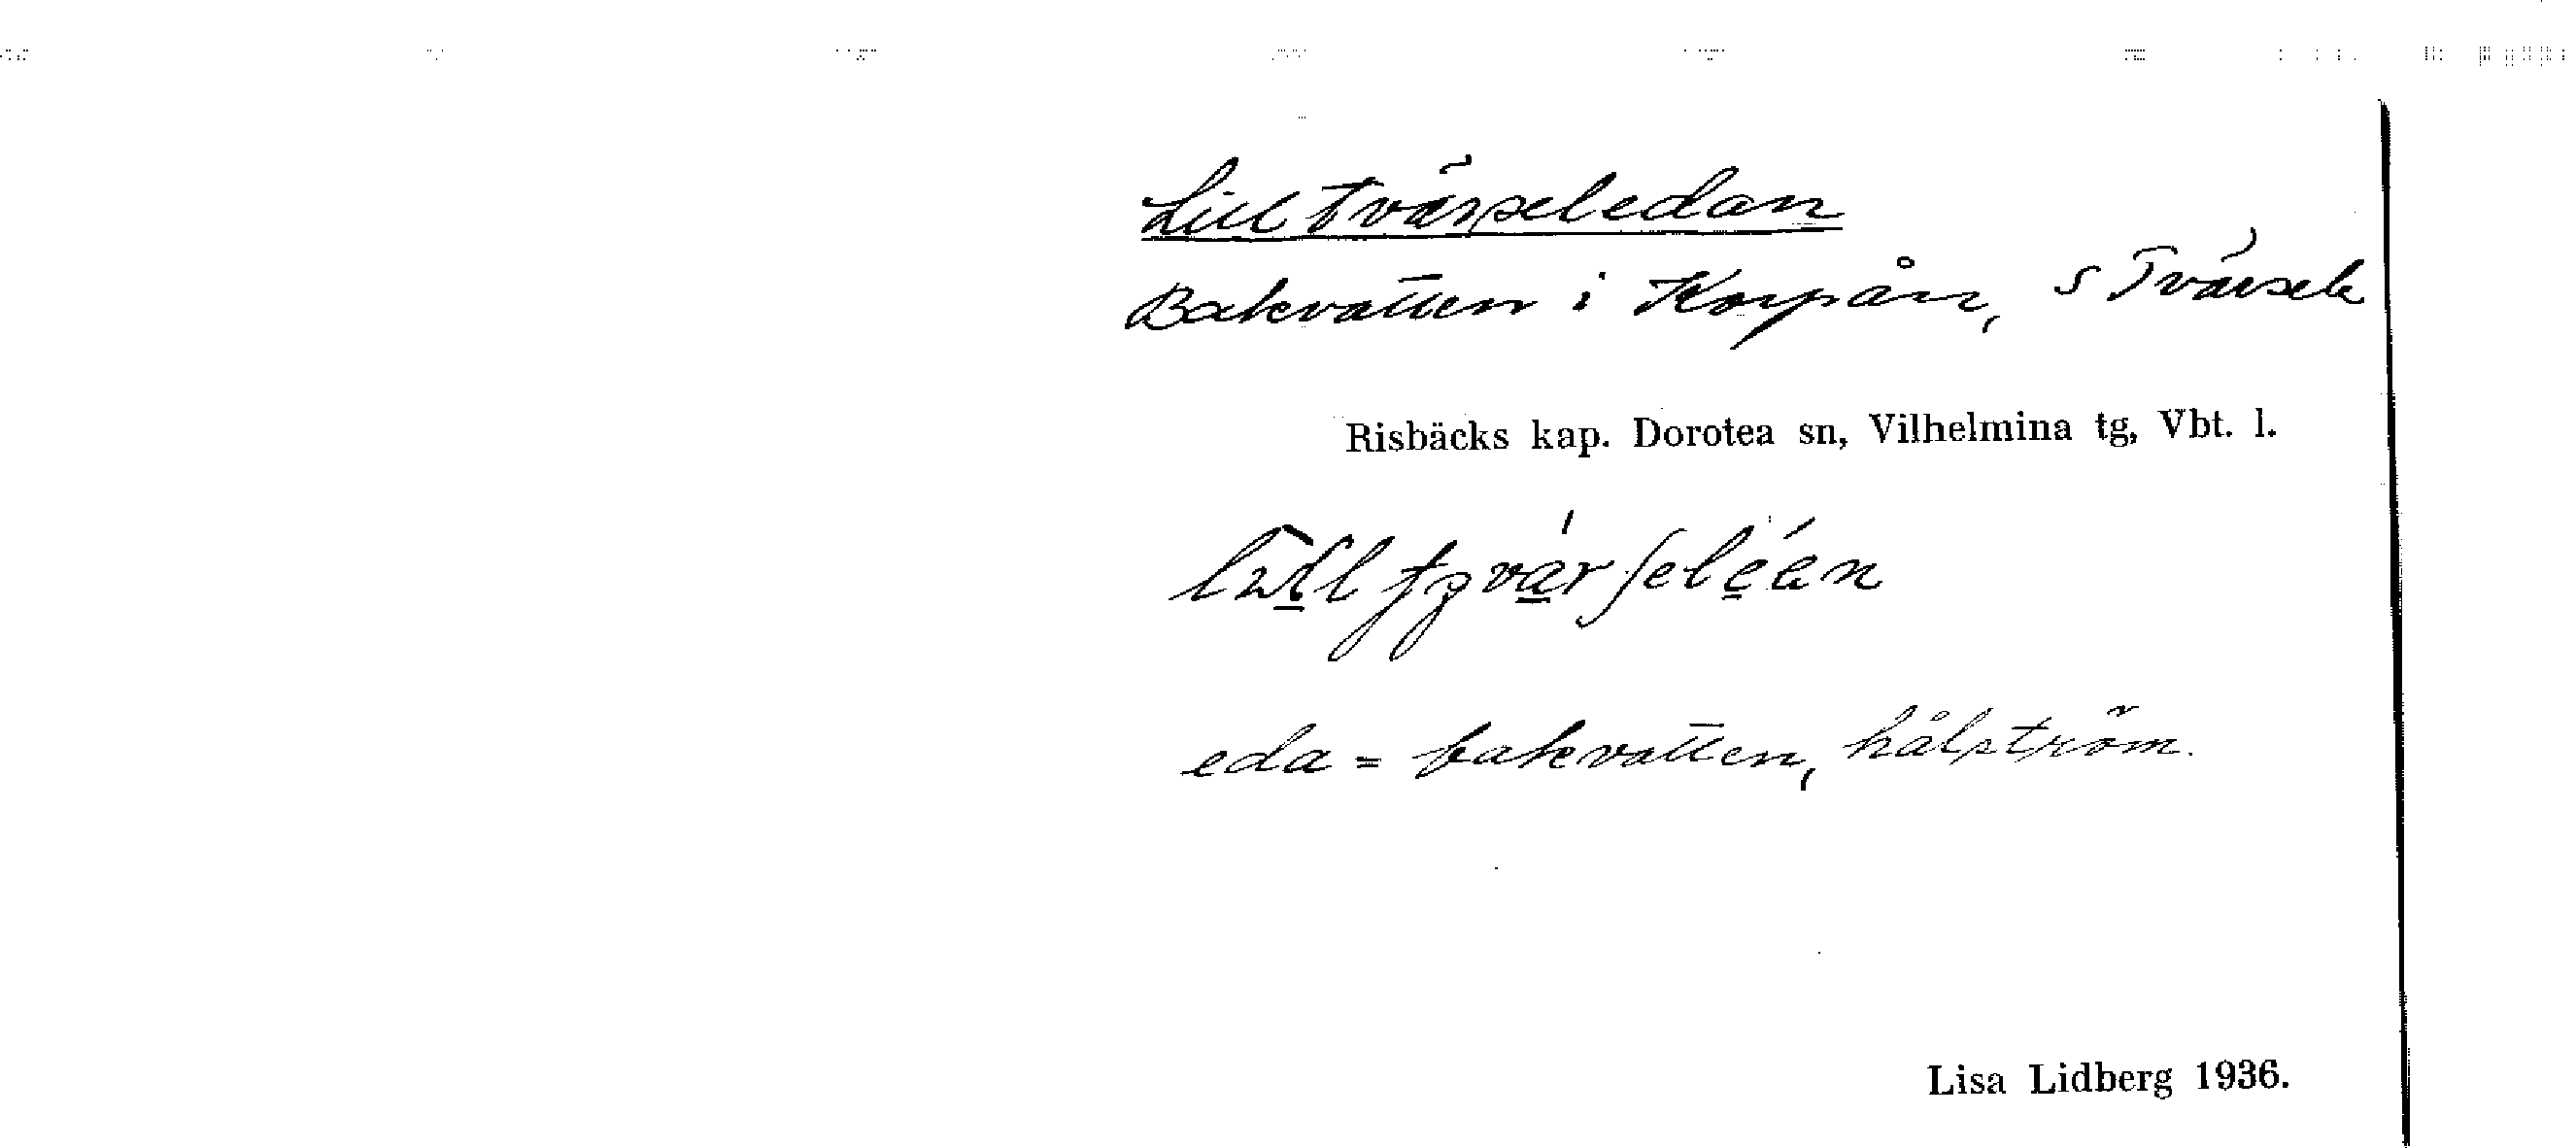 Lill Tvärseledan
Bakvatten i Korpån, S Tvärsele
Risbäcks kap. Dorotea sn, Vilhelmina tg, Vbt. l.
eda = bakvatten, hålström.
Lisa Lidberg 1936.